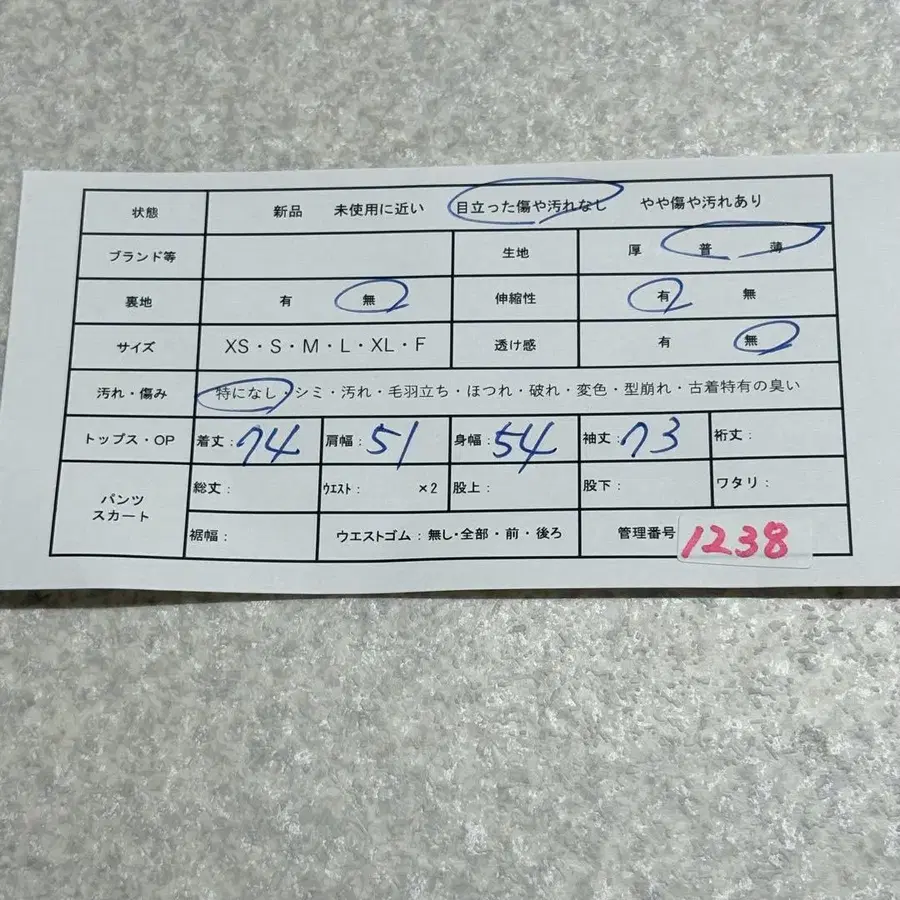 状態 新品 未使用に近い 目立った傷や汚れなし やや傷や汚れあり
ブランド等 生地 厚 普 薄
裏地 有 無 伸縮性 有 無
サイズ XS・S・M・L・XL・F 透け感 有 無
汚れ・傷み 特になし・シミ・汚れ・毛羽立ち・ほつれ・破れ・変色・型崩れ・古着特有の臭い
トップス・OP 着丈：74 肩幅：51 身幅：54 袖丈：73 裄丈：
パンツ
スカート
総丈： ウエスト： ×2 股上： 股下： ワタリ：
裾幅： ウエストゴム：無し・全部・前・後ろ 管理番号 1238